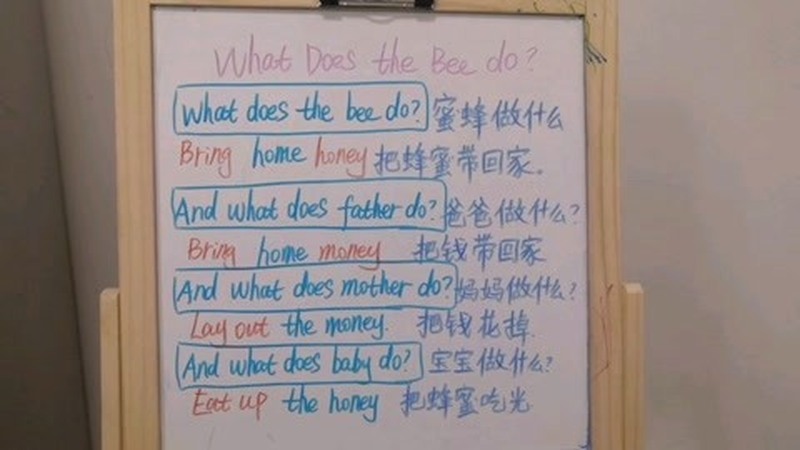 What Does the Bee do?
What does the bee do? 蜜蜂做什么
Bring home honey 把蜂蜜带回家。
And what does father do? 爸爸做什么?
Bring home money 把钱带回家
And what does mother do? 妈妈做什么?
Lay out the money. 把钱花掉
And what does baby do? 宝宝做什么?
Eat up the honey 把蜂蜜吃光